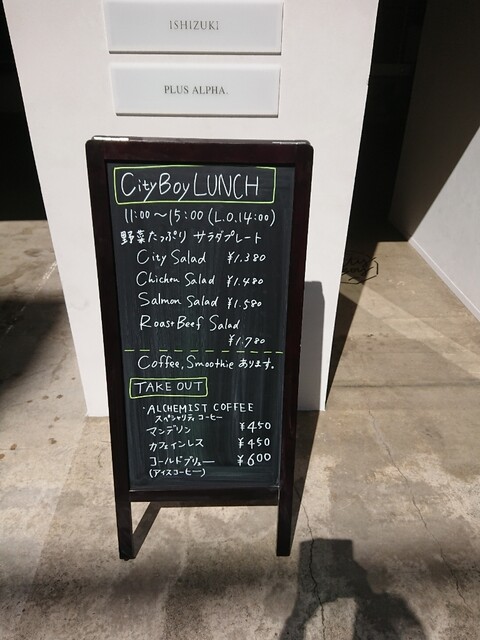 ISHIZUKI
PLUS ALPHA.
CityBoy LUNCH
11:00〜15:00 (L.O.14:00)
野菜たっぷり サラダプレート
City Salad ¥1.380
Chicken Salad ¥1.480
Salmon Salad ¥1.580
Roast Beef Salad
¥1.780
Coffee, Smoothie あります。
TAKE OUT
・ALCHEMIST COFFEE
スペシャリティ コーヒー
マンデリン ¥450
カフェインレス ¥450
コールドブリュー ¥600
(アイスコーヒー)